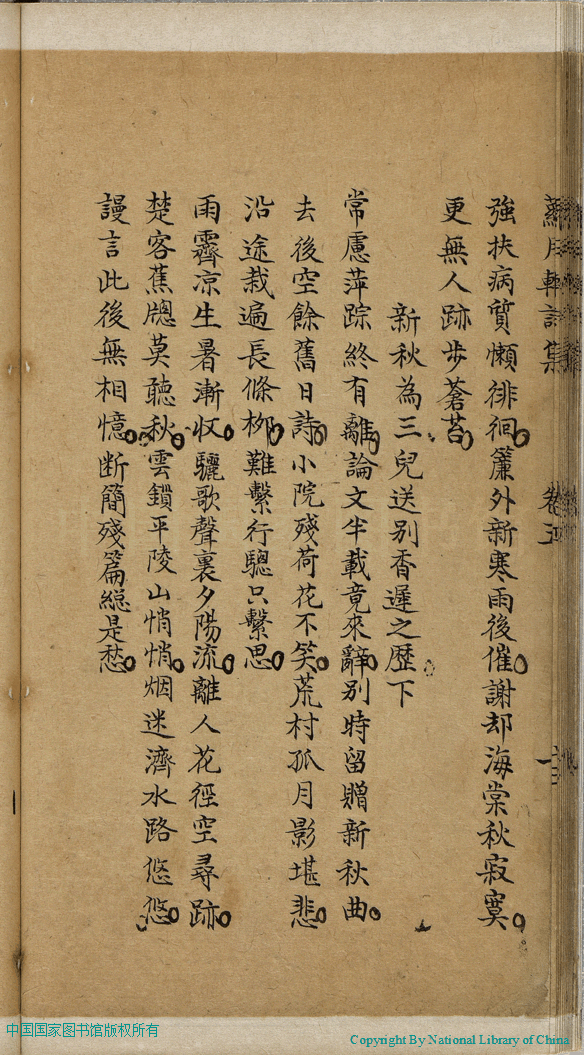 月軒詩集 卷五
強扶病質懶徘徊簾外新寒雨後催謝却海棠秋寂寞
更無人跡步蒼苔
新秋為三兒送別香遲之歷下
常慮萍踪終有離論文半載竟來辭別時留贈新秋曲
去後空餘舊日詩小院殘荷花不笑荒村孤月影堪悲
沿途栽遍長條栁難繫行驄只繫思
雨霽凉生暑漸收驪歌聲裏夕陽流離人花徑空尋跡
楚客蕉牕莫聽秋雲鎖平陵山悄悄烟迷濟水路悠悠
謾言此後無相憶断簡殘篇緫是愁
中国国家图书馆版权所有
Copyright By National Library of China